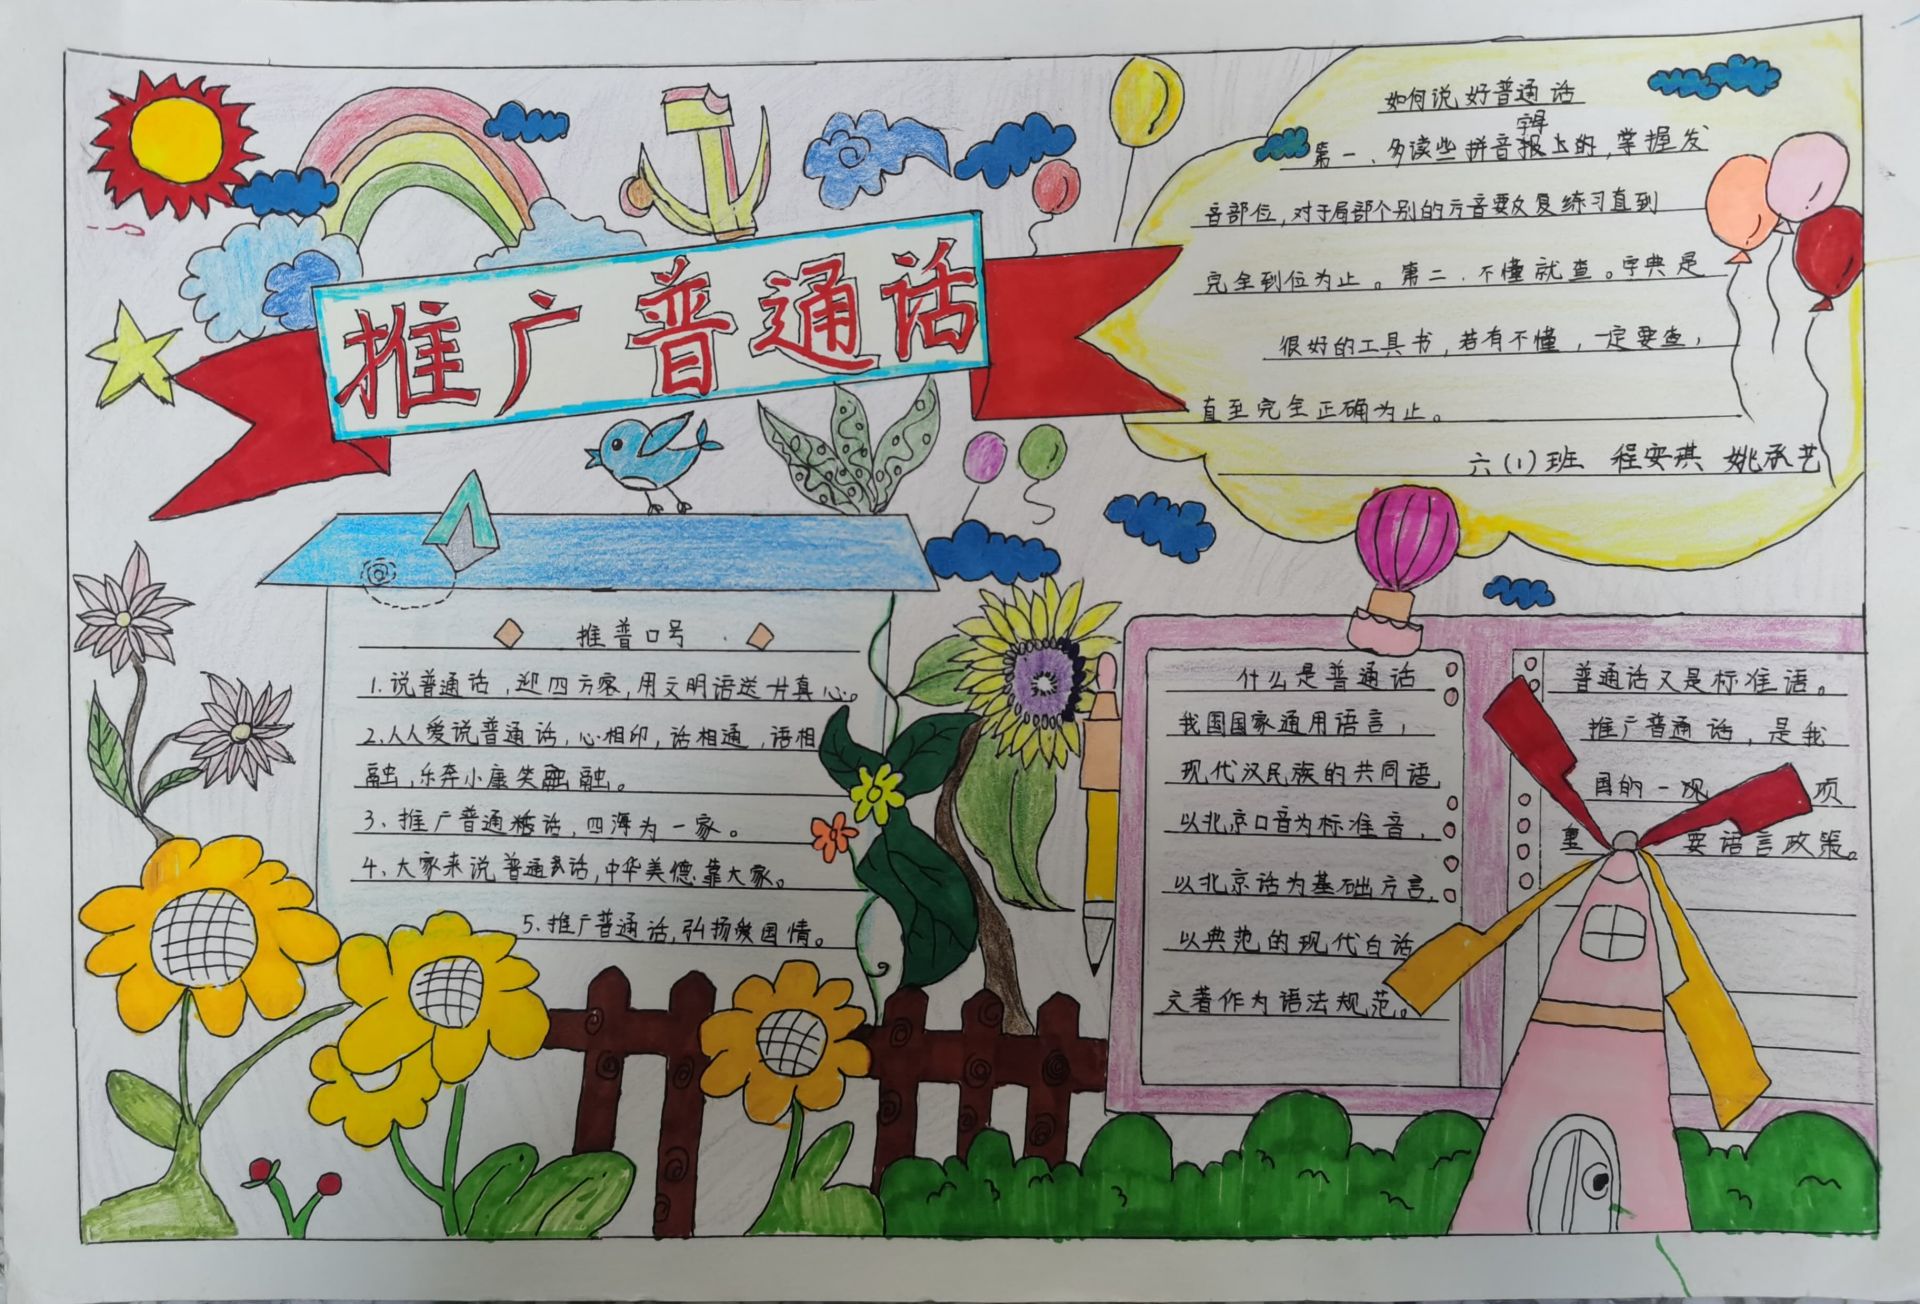 推广普通话
如何说好普通话
字母
第一、多读些拼音报上的,掌握发
音部位,对于局部个别的方音要反复练习直到
完全到位为止。第二.不懂就查。字典是
很好的工具书,若有不懂,一定要查,
直至完全正确为止。
六(1)班 程安琪 姚承艺
推普口号
1.说普通话,迎四方客,用文明语送片真心。
2.人人爱说普通话,心相印,话相通,语相
融,乐奔小康笑融融。
3、推广普通话,四海为一家。
4、大家来说普通话,中华美德靠大家。
5.推广普通话,弘扬爱国情。
什么是普通话
我国国家通用语言,
现代汉民族的共同语,
以北京口音为标准音,
以北京话为基础方言,
以典范的现代白话
文著作为语法规范。
普通话又是标准语。
推广普通话,是我
国的一项 项
重 要语言政策。